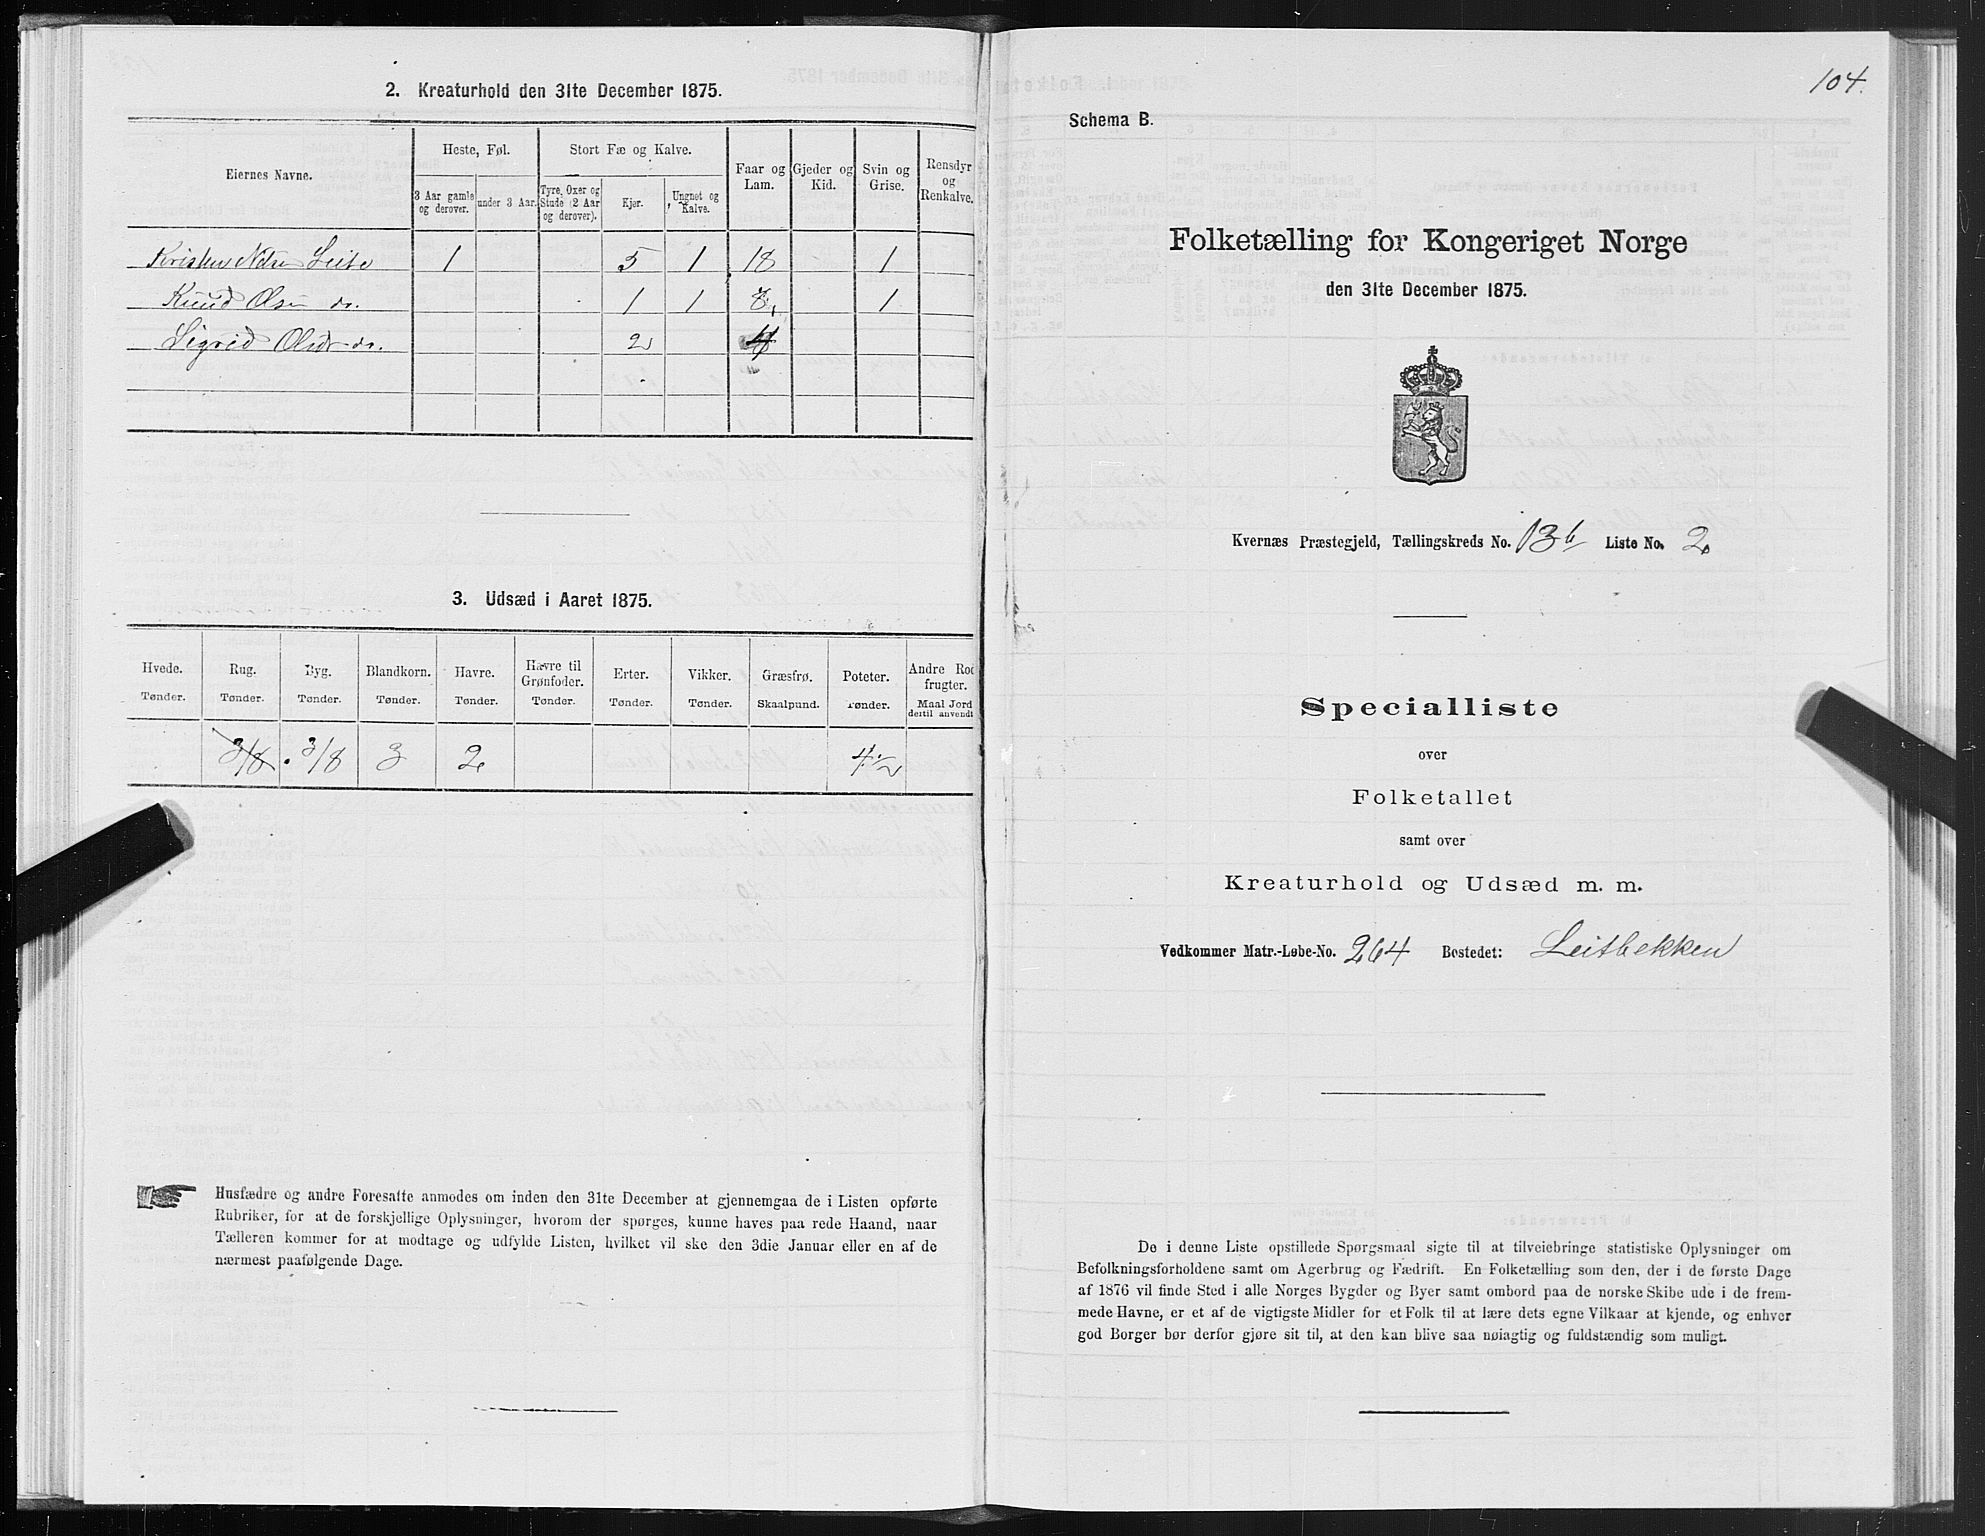 2. Kreaturhold den 31te December 1875.
Eiernes Navne.
Heste, Føl.
Stort Fæ og Kalve.
Faar og Lam.
Gjeder og Kid.
Svin og Grise.
Rensdyr og Renkalve.
3 Aar gamle og derover.
under 3 Aar.
Tyre, Oxer og Stude (2 Aar og derover).
Kjer.
Ungnet og Kalve.
Kristen Nilsen Leite 1 5 1 18 1
Knud Olsen do. 1 1 8 1
Sigrid Olsdr do. 2 4
3. Udsæd i Aaret 1875.
Hvede. Rug. Byg. Blandkorn. Havre. Havre til Grønfoder. Erter. Vikker. Græsfrø. Poteter. Andre Rodfrugter.
Tønder. Tønder. Tønder. Tønder. Tønder. Tønder. Tønder. Tønder. Skaalpund. Tønder. Maal Jord dertil anvendt
3/8 3/8 3 2 4 1/2
Husfædre og andre Foresatte anmodes om inden den 31te December at gjennemgaa de i Listen opførte
Rubriker, for at de forskjellige Oplysninger, hvorom der spørges, kunne haves paa rede Haand, naar
Tælleren kommer for at modtage og udfylde Listen, hvilket vil ske den 3die Januar eller en af de
nærmest paafølgende Dage.
104.
Schema B.
Folketælling for Kongeriget Norge
den 31te December 1875.
Kvernæs Præstegjeld, Tællingskreds No. 13b Liste No. 2
Specialliste
over
Folketallet
samt over
Kreaturhold og Udsæd m. m.
Vedkommer Matr.-Løbe-No. 264 Bostedet: Leitbekken
De i denne Liste opstillede Spørgsmaal sigte til at tilveiebringe statistiske Oplysninger om
Befolkningsforholdene samt om Agerbrug og Fædrift. En Folketælling som den, der i de første Dage
af 1876 vil finde Sted i alle Norges Bygder og Byer samt ombord paa de norske Skibe ude i de frem-
mede Havne, er et af de vigtigste Midler for et Folk til at lære dets egne Vilkaar at kjende, og enhver
god Borger bør derfor gjøre sit til, at den kan blive saa nøiagtig og fuldstændig som muligt.